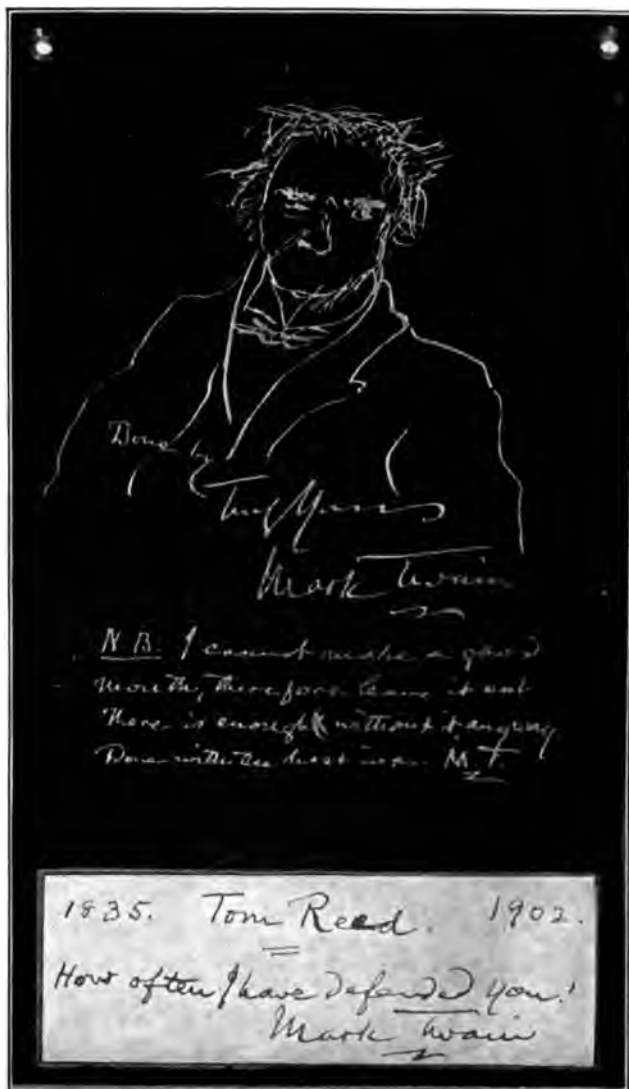 Done by
Truly Yours
Mark Twain
N B. I cannot make a good
mouth, therefore leave it out
There is enough without it anyway
Done with the best ink. M.T.
1835. Tom Reed. 1902.
How often I have defended you!
Mark Twain